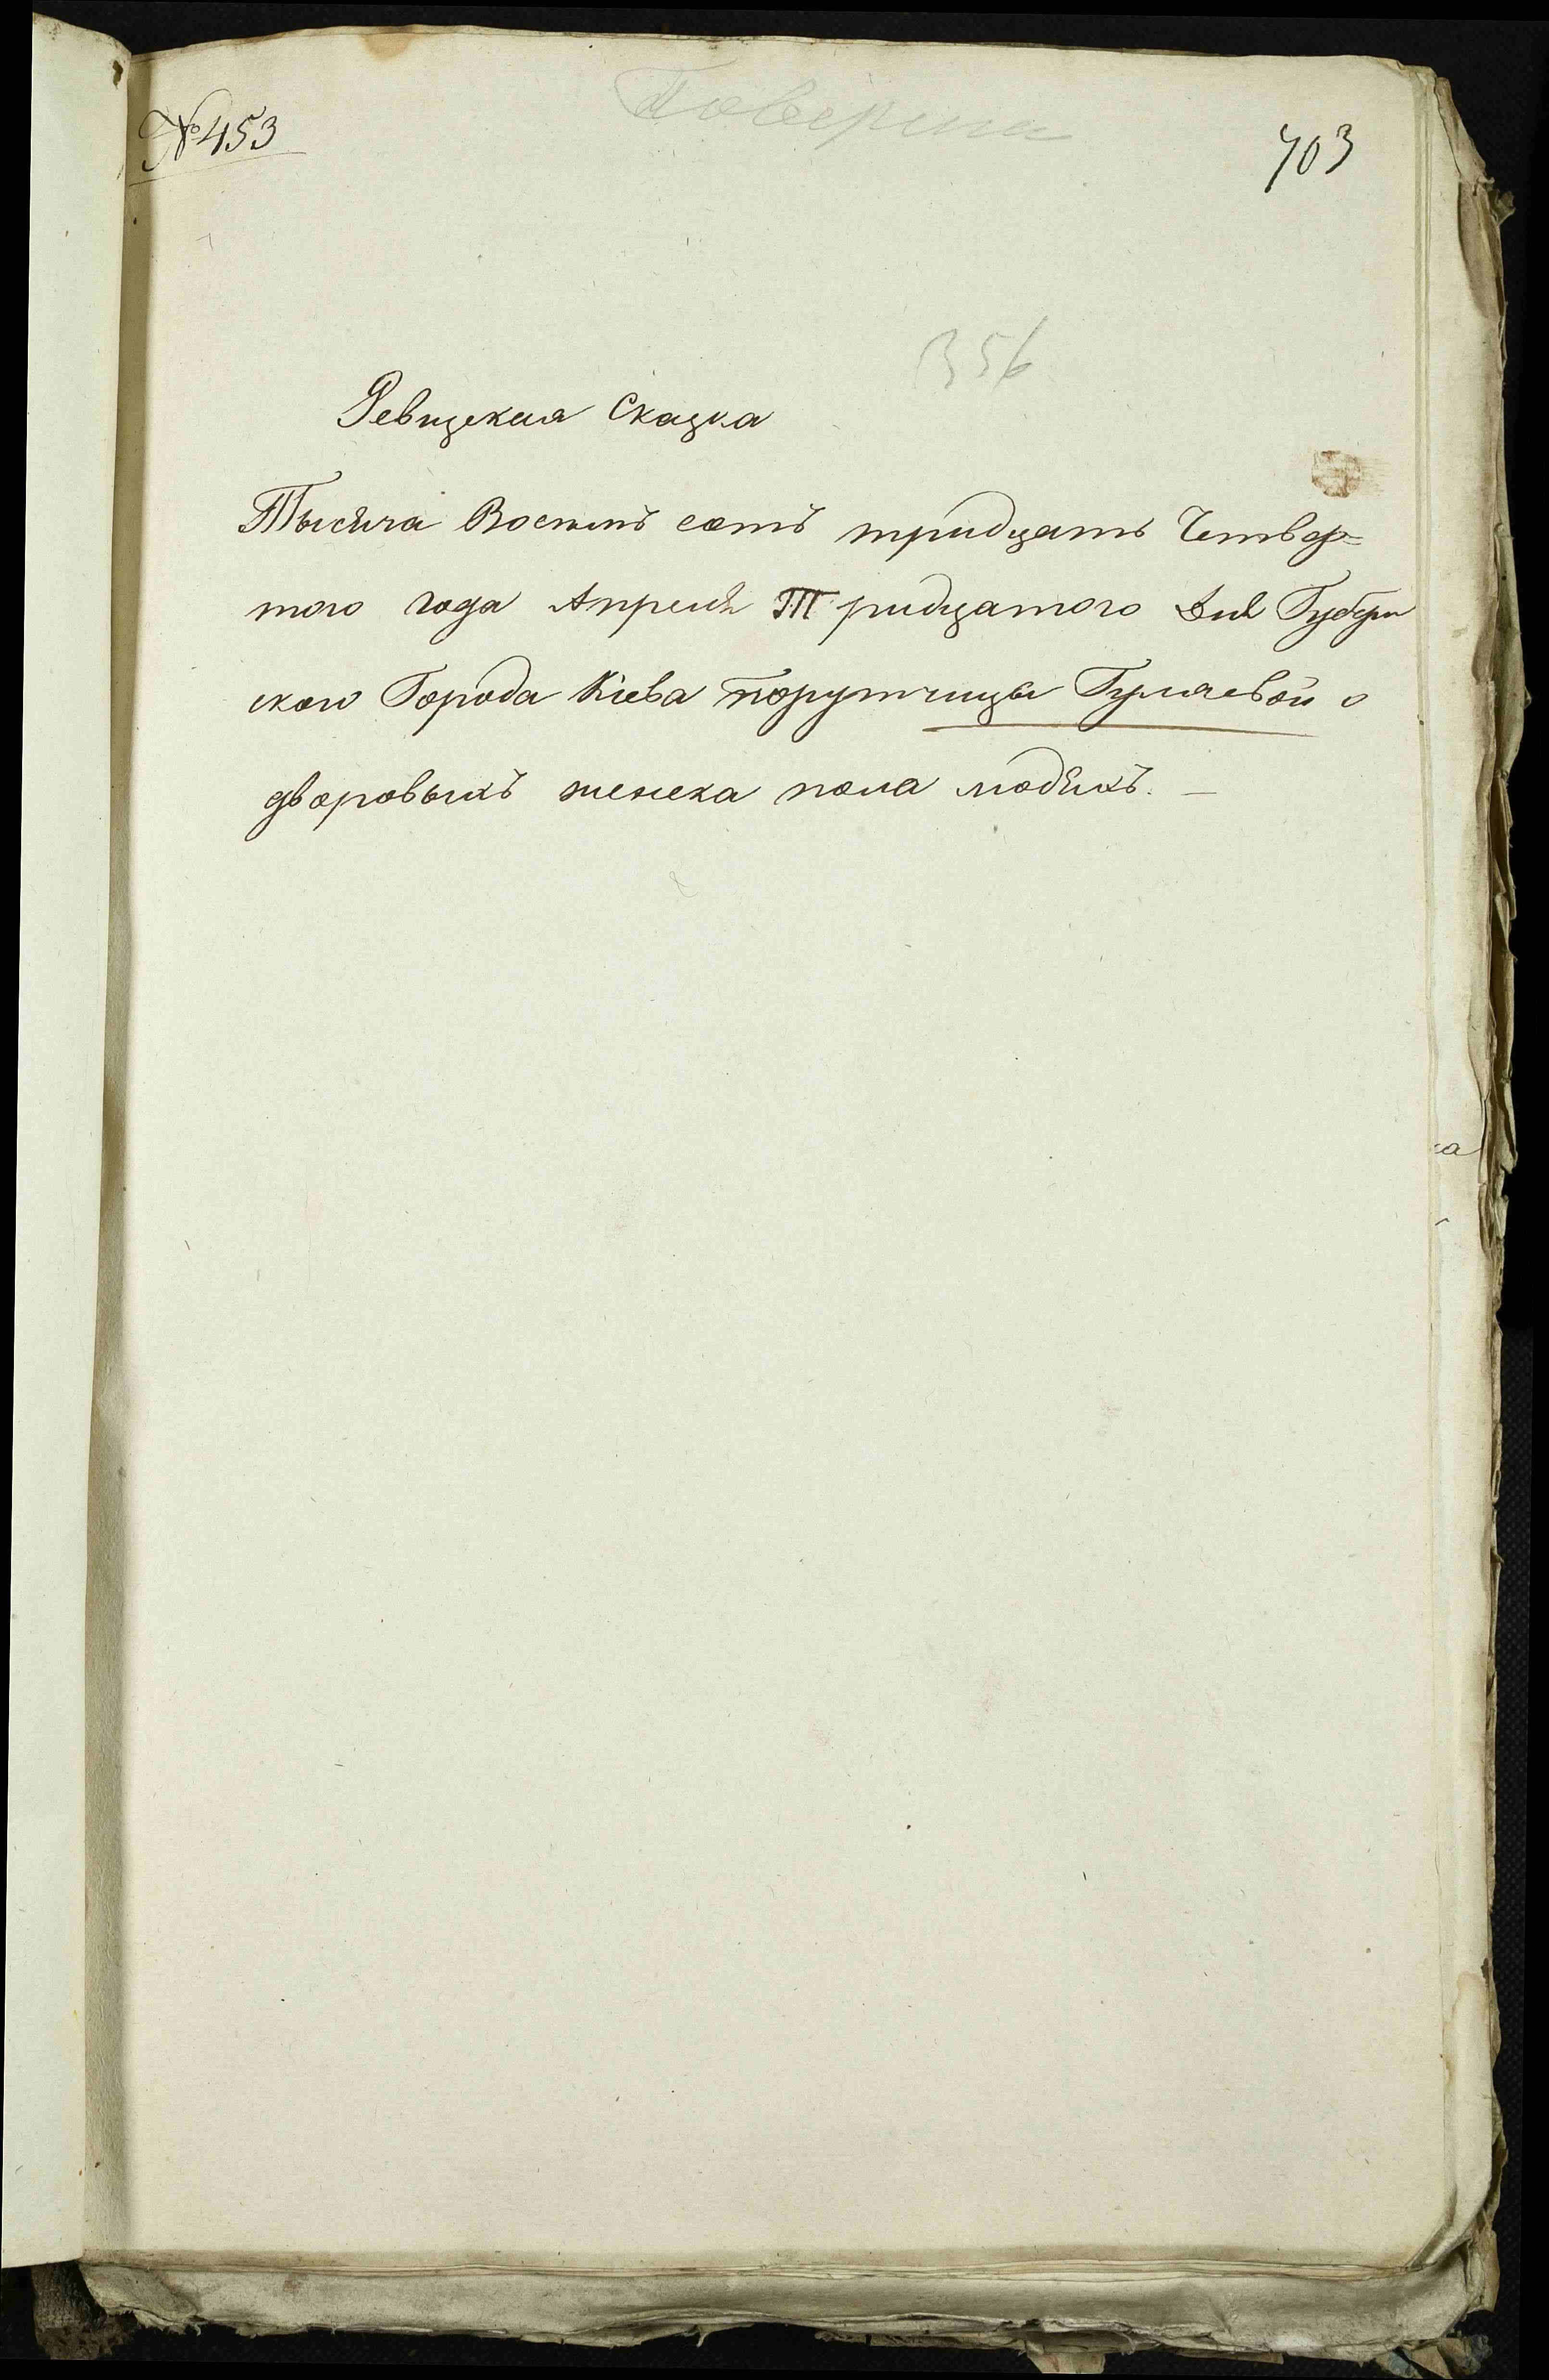 № 453
Поверена
703
356
Ревизская Сказка
Тысяча Восемь сотъ тридцать Четвер=
того года Апреля Тридцатого дня Губерн
ского Города Кіева порутчицы Гуляевой о
дворовыхъ женска пола людяхъ. —